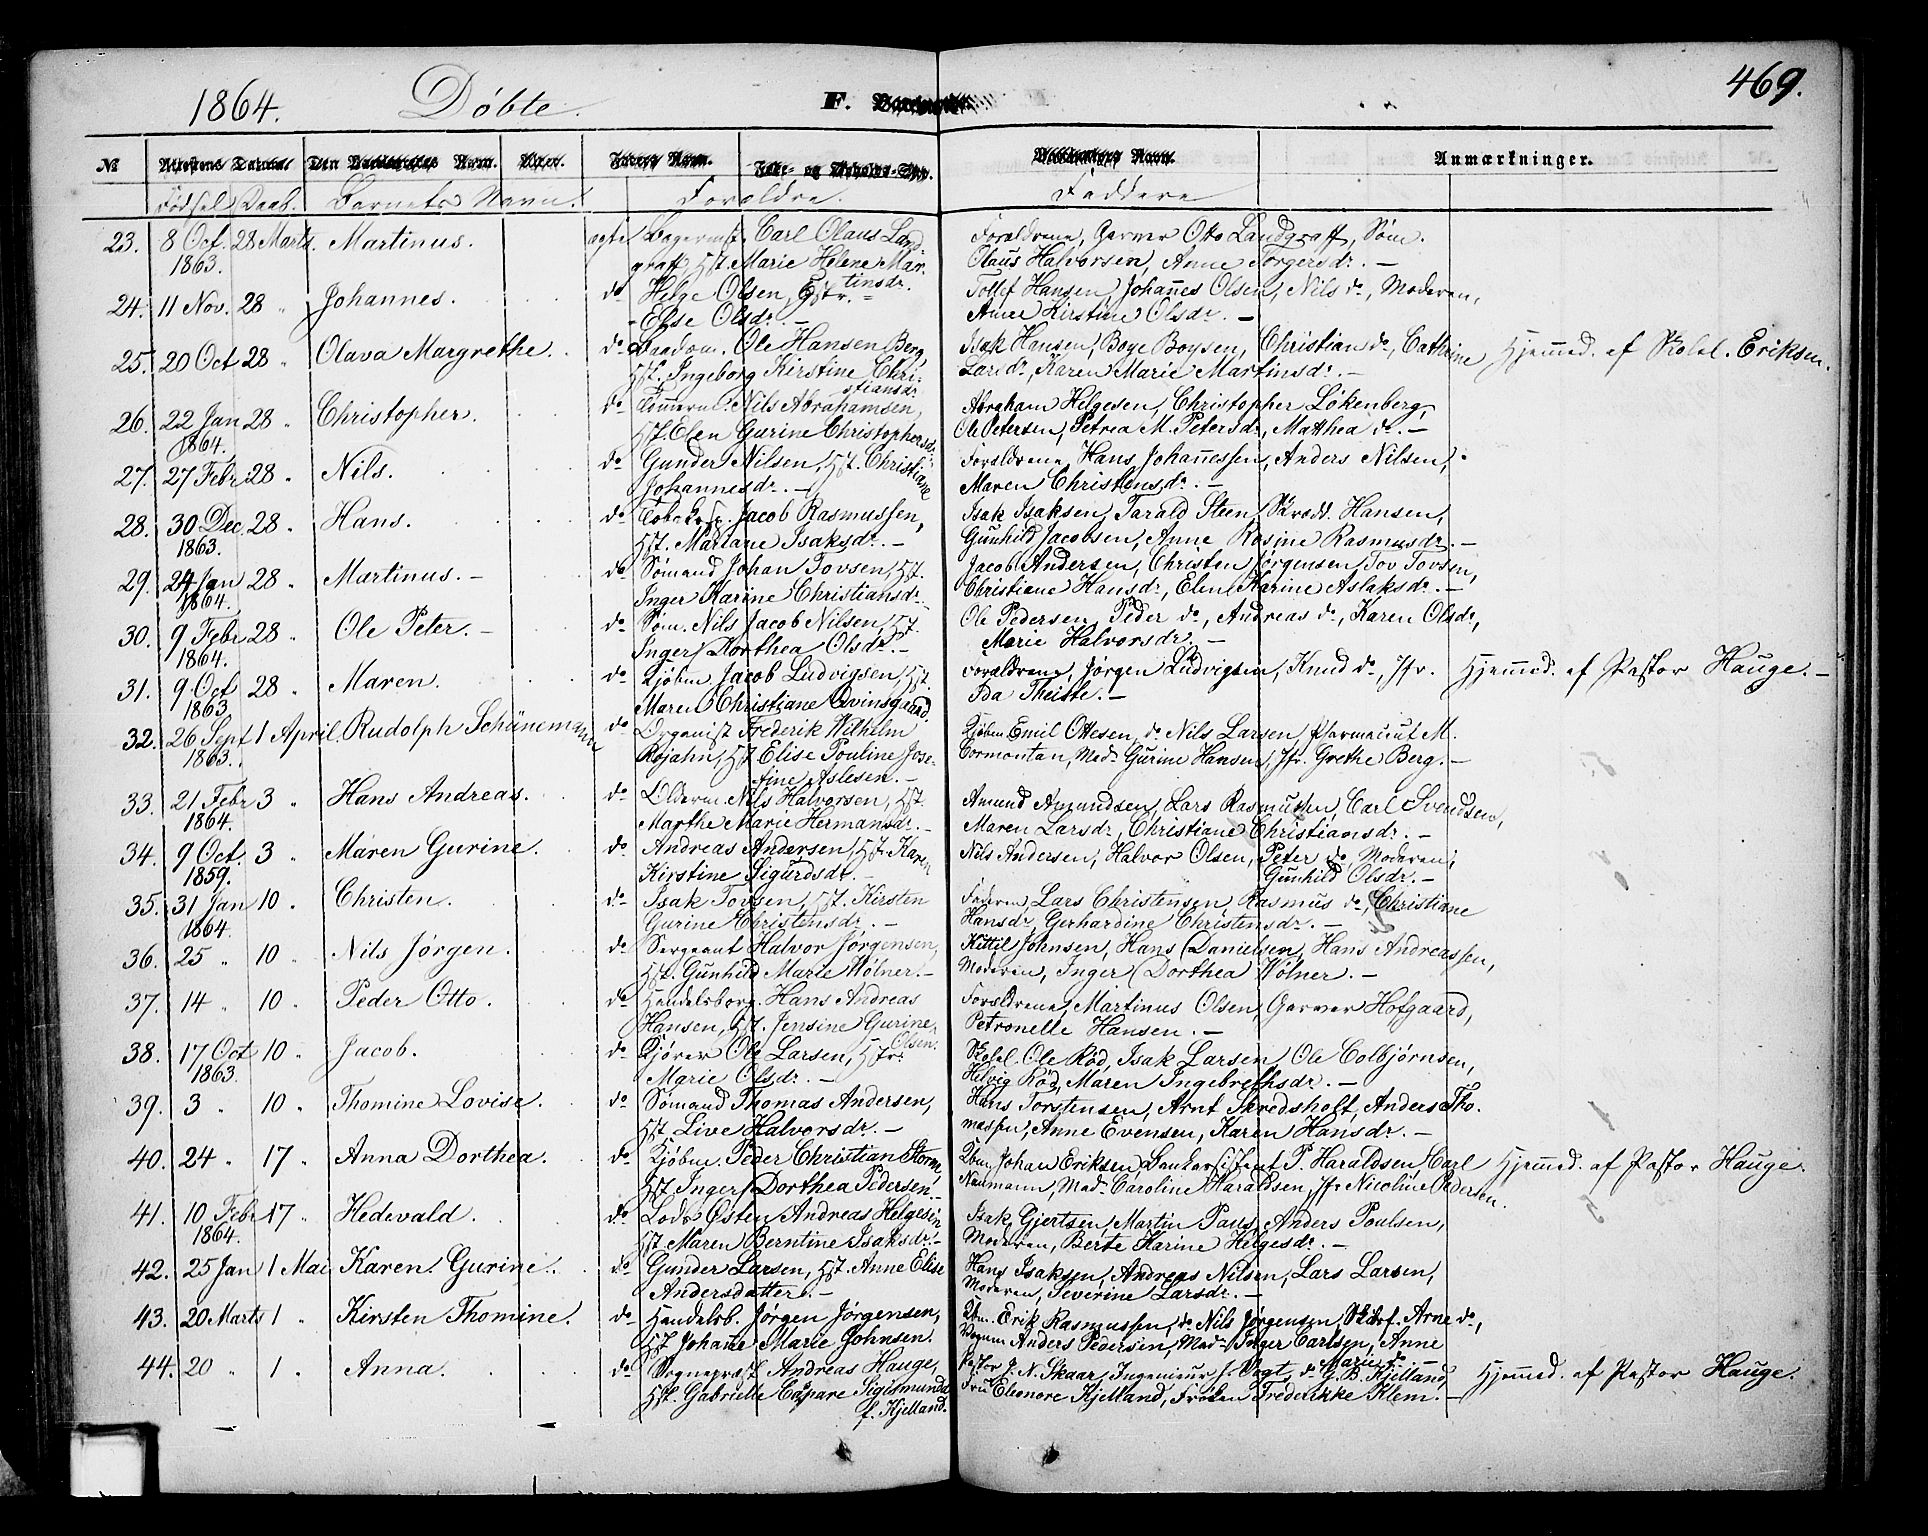 1864. Döbte. F. 469.
No Den Navn. Anmærkninger.
Födsel Daab. Barnets Navn. Forældre. Faddere
23. 8 Oct. 28 Marts. Martinus. ægte Bagermst. Carl Olaus Land- Forældrene, Garver Otto Landgraff, Søm.
1863. graff, Hst. Marie Helene Mar- Olaus Halvorsen, Anne Torgersdr. —
tinsdr.
24. 11 Nov. 28 " Johannes. do Helge Olsen, Hstr. = Tollef Hansen, Johannes Olsen, Nils do, Moderen,
Else Olsdr. — Anne Kirstine Olsdr. —
25. 20 Oct 28 " Olava Margrethe. do Baadsm. Ole Hansen Berg, Isak Hansen, Boye Boysen, Christian do, Cathrine Hjemmed. af Skolel. Eriksen.
Hst. Ingeborg Kirstine Chri- Larsdr, Karen Marie Martinsdr. —
stiansdr.
26. 22 Jan 28 " Christopher. do Tømmerm. Nils Abrahamsen, Abraham Helgesen, Christopher Lökenberg,
1864. Hst. Elen Gurine Christophersdr. Ole Petersen, Petrea M. Petersdr, Matthea do. —
27. 27 Febr 28 " Nils. do Gunder Nilsen, Hst. Christiane Forældrene, Hans Johannessen, Anders Nilsen,
Johannesdr. — Maren Christensdr. —
28. 30 Dec. 28 " Hans. do Tobaksp. Jacob Rasmussen, Isak Isaksen, Tarald Steen, Skrædd. Hansen,
1863. Hst. Mariane Isaksdr. — Gunhild Jacobsen, Anne Rosine Rasmusdr. —
29. 24 Jan 28 " Martinus. — do Sømand Johan Tovsen, Hst. Jacob Andersen, Christen Jørgensen, Tov Tovsen,
1864. Inger Karine Christiansdr. Christiane Hansdr, Elen Karine Aslaksdr. —
30. 9 Febr 28 " Ole Peter. — do Søm. Nils Jacob Nilsen, Hst. Ole Pedersen, Peder do, Andreas do, Karen Olsdr,
1864. Inger Dorthea Olsdr. — Marie Halvorsdr. —
31. 9 Oct 28 " Maren. do Kjöbm. Jacob Ludvigsen, Hst. Forældrene, Jørgen Ludvigsen, Knud do, Jfr. Hjemmed. af Pastor Hauge. —
1863 Maren Christiane Qvinsgaard. Ida Theiste. —
32. 26 Sept 1 April. Rudolph Schänemann do Organist Frederik Wilhelm Kjöbm Emil Ottesen, do Nils Larsen, Pharmaceut M.
1863. Rojahn, Hst Elise Pouline Jose- Cormontan, Mad. Gurine Hansen, Jfr. Grethe Berg. —
fine Aslesen. —
33. 21 Febr 3 " Hans Andreas. do Olderm. Nils Halvorsen, Hst. Amund Amundsen, Lars Rasmussen, Carl Svendsen,
1864. Marthe Marie Hermansdr. — Maren Larsdr, Christiane Christiansdr. —
34. 9 Oct. 3 " Maren Gurine. do Andreas Andersen, Hst. Karen Nils Andersen, Halvor Olsen, Peter do, Moderen,
1859. Kirstine Sigurdsdr. — Gunhild Olsdr. —
35. 31 Jan 10 " Christen. do Isak Tovsen, Hst. Kirsten Faderen, Lars Christensen, Rasmus do, Christiane
1864. Gurine Christensdr. — Hansdr, Gerhardine Christensdr. —
36. 25 " 10 " Nils Jørgen. do Sergeant Halvor Jørgensen, Kittil Johnsen, Hans Danielsen, Hans Andreassen,
Hst. Gunhild Marie Wölner. — Moderen, Inger Dorthea Wölner. —
37. 14 " 10 " Peder Otto. do Handelsborg. Hans Andreas Forældrene, Martinus Olsen, Garver Hofgaard,
Hansen, Hst. Jensine Gurine Petronelle Hansen. —
Olsen.
38. 17 Oct 10 " Jacob. do Kjører Ole Larsen, Hstr. Skolel. Ole Röd, Isak Larsen, Ole Colbjørnsen,
1863. Marie Olsdr. — Helvig Röd, Maren Ingebrethsdr. —
39. 3 " 10 " Thomine Lovise. do Sømand Thomas Andersen, Hans Torstensen, Arnt Skredsholt, Anders Tho-
Hst. Live Halvorsdr. — massen, Anne Evensen, Karen Hansdr. —
40. 24 " 17 " Anna Dorthea. do Kjöbm. Peder Christian Storm, Kbm. Johan Eriksen, Bankassistent P. Haraldsen, Carl Hjemmed. af Pastor Hauge.
Hst. Inger Dorthea Pedersen. — Naumann, Mad. Caroline Haraldsen, Jfr Nicoline Pedersen.
41. 10 Febr 17 " Hedevald. do Lods Østen Andreas Helgesen Isak Gjertsen, Martin Paus, Anders Poulsen,
1864. Hst Maren Berntine Isaksdr. — Moderen, Berte Karine Helgesdr. —
42. 25 Jan 1 Mai Karen Gurine. do Gunder Larsen, Hst. Anne Elise Hans Isaksen, Andreas Nilsen, Lars Larsen,
Andersdatter. — Moderen, Severine Larsdr. —
43. 20 Marts 1 " Kirsten Thomine. do Handelsb. Jørgen Jørgensen, Kbm. Erik Rasmussen, do Nils Jørgensen, Arne do,
Hst Johane Marie Johnsen. Vognm Anders Pedersen, Mad. Inger Carlsen, Anne
Marie do
44. 20 " 1 " Anna. do Sognepræst Andreas Hauge, Pastor J. N. Skaar, Ingenieur J. Vogt, do G. B. Kjelland, Hjemmed. af Pastor Hauge.
Hst. Gabrielle Caspare Sigismunda Fru Eleonore Kjelland, Frøken Frederikke Klem. —
f. Kjelland.